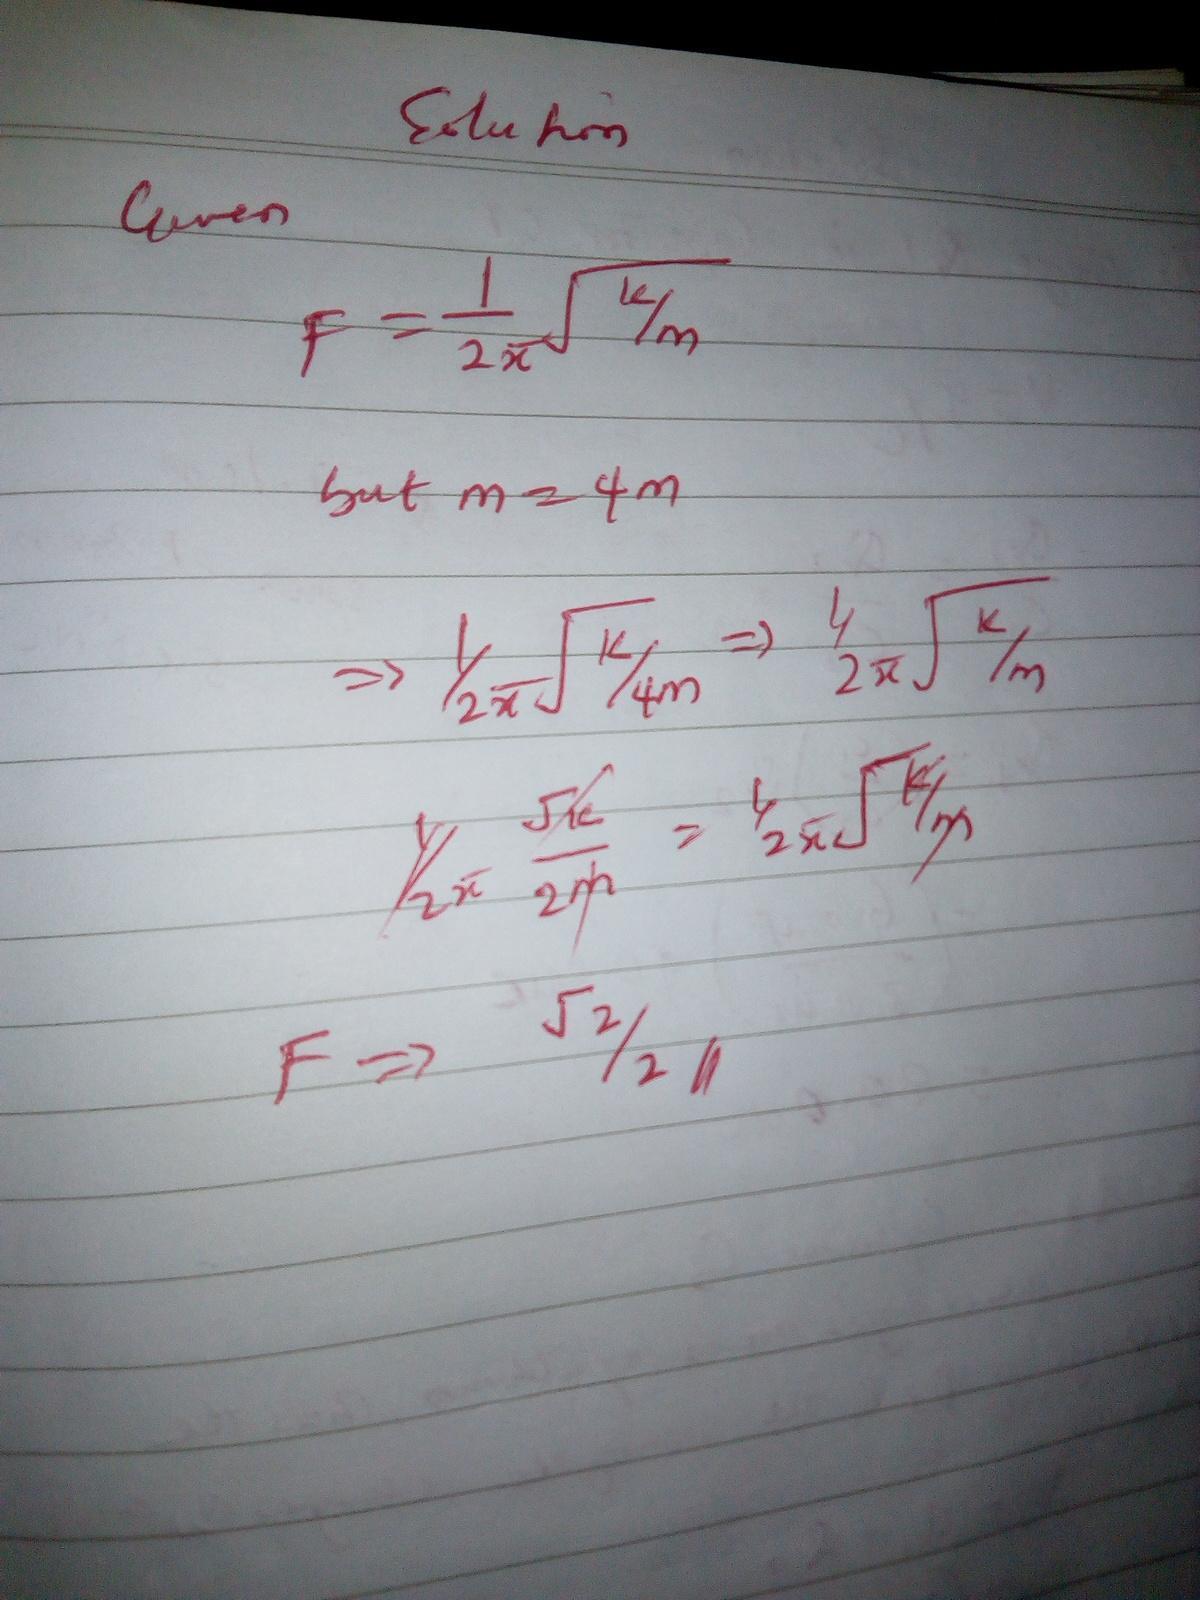 Solution
Given
F = 1/2π √k/m
but m = 4m
=> 1/2π √k/4m => 1/2π √k/m
1/2π √k/2m = 1/2π √k/m
F => √2/2 //